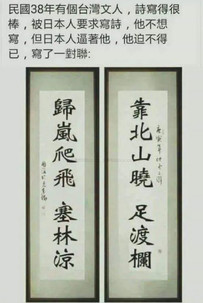 民國38年有個台灣文人，詩寫得很
棒，被日本人要求寫詩，他不想
寫，但日本人逼著他，他迫不得
已，寫了一對聯:
靠北山曉 足渡欄
歸嵐爬飛 塞林涼